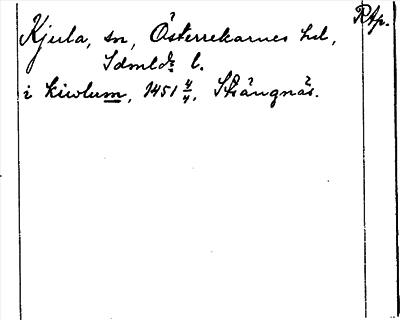 Rtp.
Kjula, sn, Österrekarnes hd,
Sdmlds l.
i kiwlum, 1451 4/4. Strängnäs.